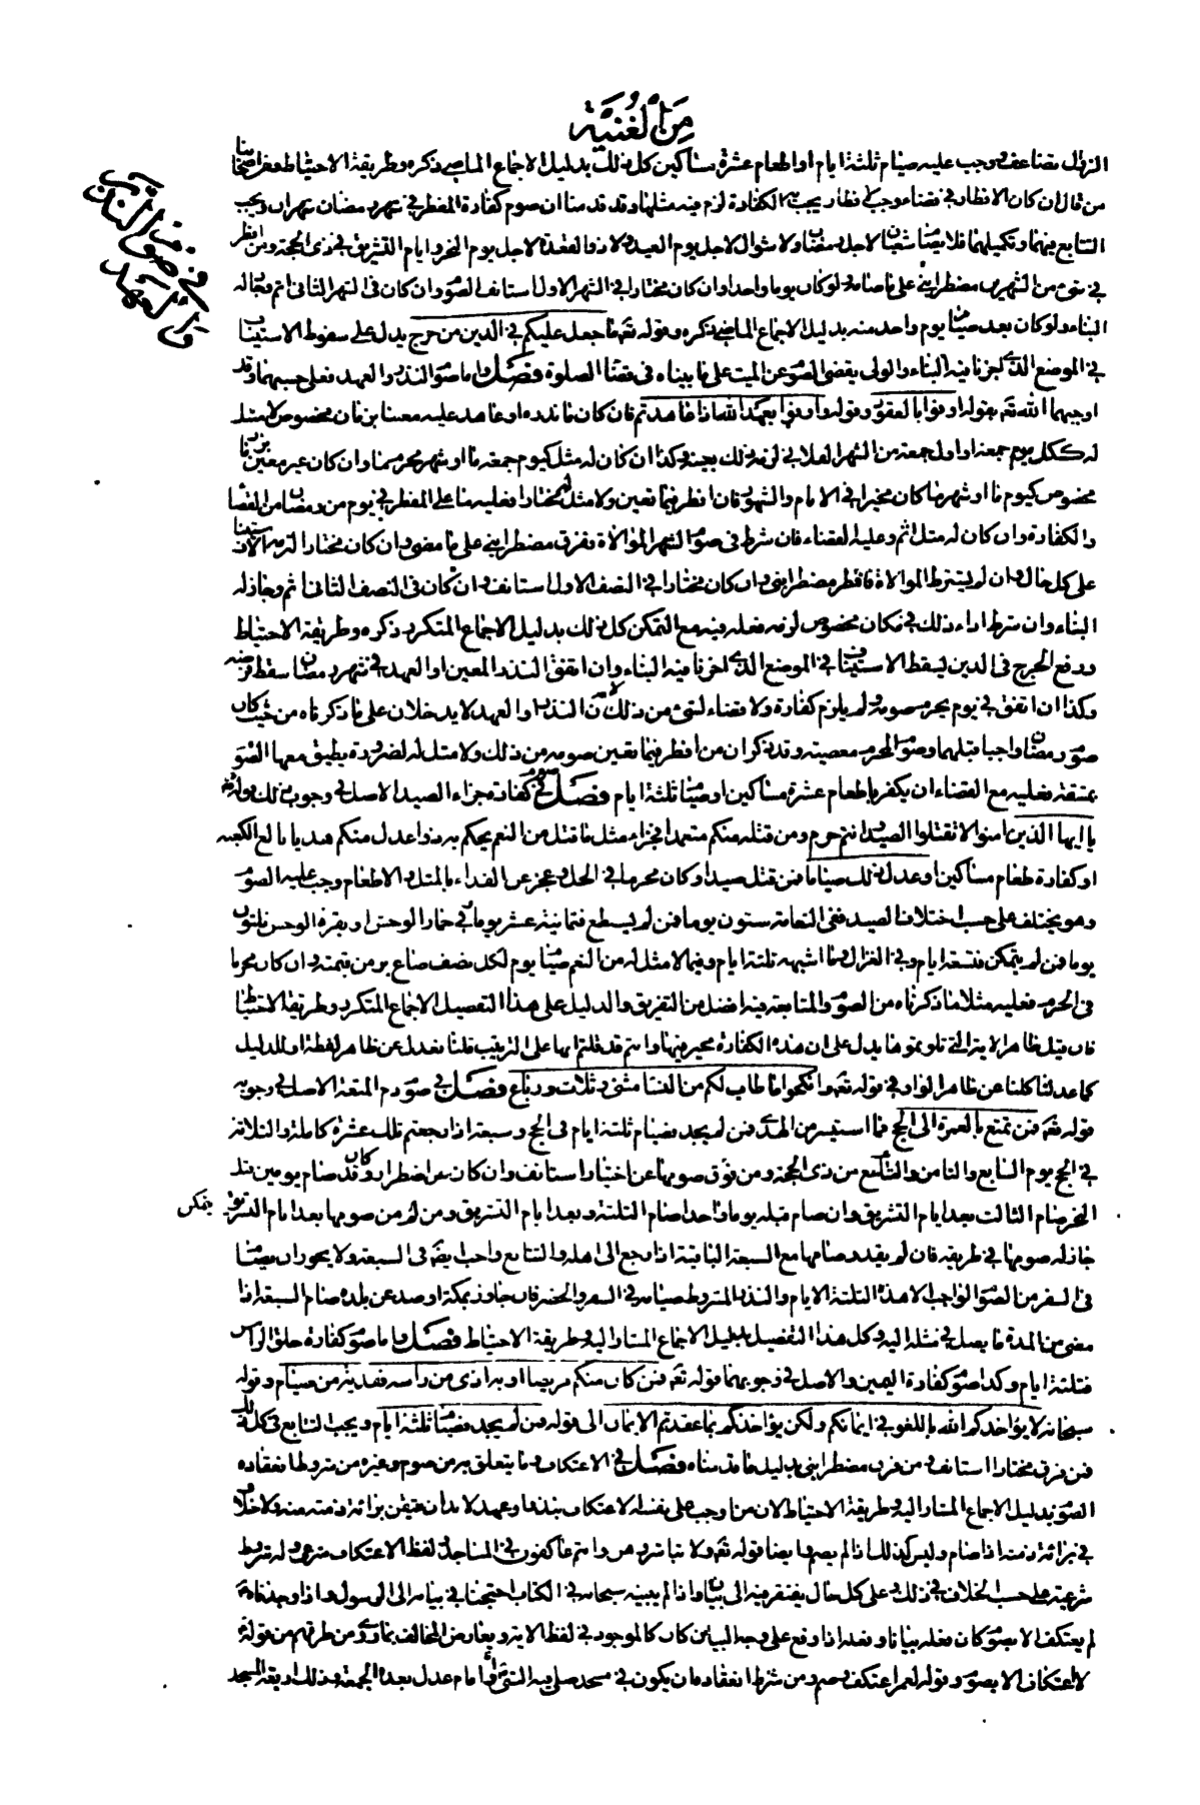 مِنَ الغُنيَة
الزوال فضاعف وجب عليه صيام ثلثة ايام او اطعام عشرة مساكين كل ذلك بدليل الاجماع الماضي ذكره وطريقة الاحتياط ومن اصحابنا
من قال ان كان الافطار في قضاء ما وجب في افطاره الكفارة لزم فيه مثلها وقد قدمنا ان صوم كفارة المفطر في شهر رمضان شهران ويجب
التتابع فيهما وتكميلهما فلا يصام شعبان لاجل رمضان ولا شوال لاجل يوم العيد ولا ذو القعدة لاجل يوم النحر وايام التشريق في ذي الحجة ومن افطر
في شيء من الشهرين مضطرا بنى على ما صامه ولو كان يوما واحدا وان كان مختارا في الشهر الاول استانف الصوم وان كان في الشهر الثاني اثم وجاز له
البناء ولو كان بعد صيام يوم واحد منه بدليل الاجماع الماضي ذكره وقوله تعالى ما جعل عليكم في الدين من حرج يدل على سقوط الاستيناف
في الموضع الذي اجزنا فيه البناء والولي يقضي الصوم عن الميت على ما بيناه في قضاء الصلوة فصل واما صوم النذر والعهد فعلى حسبهما وقد
اوجبهما الله تعالى بقوله اوفوا بالعقود وقوله واوفوا بعهد الله اذا عاهدتم فان كان ما نذره او عاهد عليه معينا بزمان مخصوص لا مثل
له ككل يوم جمعة او اول جمعة من الشهر الفلاني لزمه ذلك بعينه وكذا ان كان له مثل كيوم جمعة ما او شهر محرم ما وان كان غير معين بزمان
مخصوص كيوم ما او شهر ما كان مخيرا في الايام والشهور فان افطر فيما تعين ولا مثل له مختارا فعليه ما على المفطر في يوم من رمضان من القضاء
والكفارة وان كان له مثل اثم وعليه القضاء فان شرط في صوم الشهر الموالاة ففرق مضطرا بنى على ما مضى وان كان مختارا لزمه الاستيناف
على كل حال وان لم يشترط الموالاة فافطر مضطرا بنى وان كان مختارا في النصف الاول استانف وان كان في النصف الثاني اثم وجاز له
البناء وان شرط اداء ذلك في مكان مخصوص لزمه فعله فيه مع التمكن كل ذلك بدليل الاجماع المتكرر ذكره وطريقة الاحتياط
ورفع الحرج في الدين يسقط الاستيناف في الموضع الذي اجزنا فيه البناء وان اتفق النذر المعين او العهد في شهر رمضان سقط فرضه
وكذا ان اتفق في يوم يحرم صومه ولم يلزم كفارة ولا قضاء لشيء من ذلك لان النذر والعهد لا يدخلان على ما ذكرناه من حيث كان
صوم رمضان واجبا قبلهما وصوم المحرم معصية وقد ذكر ان من افطر فيما تعين صومه من ذلك ولا مثل له لضرورة يطيق معها الصوم
بمشقة فعليه مع القضاء ان يكفر باطعام عشرة مساكين او صيام ثلثة ايام فصل في صوم كفارة جزاء الصيد الاصل في وجوب ذلك قوله تعالى
يا ايها الذين امنوا لا تقتلوا الصيد وانتم حرم ومن قتله منكم متعمدا فجزاء مثل ما قتل من النعم يحكم به ذوا عدل منكم هديا بالغ الكعبة
او كفارة طعام مساكين او عدل ذلك صياما فمن قتل صيدا وكان محرما في الحل وعجز عن الفداء بالمثل والاطعام وجب عليه الصوم
وهو يختلف على حسب اختلاف الصيد ففي النعامة ستون يوما فمن لم يسطع فثمانية عشر يوما وفي حمار الوحش او بقرة الوحش ثلثون
يوما فمن لم يتمكن فتسعة ايام وفي الغزال وما اشبهه ثلثة ايام وفيما لا مثل له من النعم صيام يوم لكل نصف صاع بر من قيمته وان كان محرما
في الحرم فعليه مثلا ما ذكرناه من الصوم والمتابعة فيه افضل من التفريق والدليل على هذا التفصيل الاجماع المتكرر وطريقة الاحتياط
فان قيل ظاهر الاية التي تلوتموها يدل على ان هذه الكفارة مخير فيها وانتم قد قلتم انها على الترتيب قلنا نعدل عن ظاهر لفظة او للدليل
كما عدلنا كلنا عن ظاهر الواو في قوله تعالى وانكحوا ما طاب لكم من النساء مثنى وثلاث ورباع فصل في صوم دم المتعة الاصل في وجوبه
قوله تعالى فمن تمتع بالعمرة الى الحج فما استيسر من الهدي فمن لم يجد فصيام ثلثة ايام في الحج وسبعة اذا رجعتم تلك عشرة كاملة والثلاثة
في الحج يوم السابع والثامن والتاسع من ذي الحجة ومن فرق صومها عن اختيار استانف وان كان عن اضطرار وكان قد صام يومين قبل
النحر صام الثالث بعد ايام التشريق وان صام قبله يوما واحدا صام الثلثة وبعد ايام التشريق ومن لم يتمكن من صومها بعد ايام التشريق
جاز له صومها في طريقه فان لم يقدر صامها مع السبعة الباقية اذا رجع الى اهله والتتابع واجب ايضا في السبعة ولا يجوز ان يصام
في السفر من الصوم الواجب الا هذه الثلثة الايام والنذر المشروط صيامه في السفر والحضر فان جاوز بمكة او صد عن بلده صام السبعة اذا
مضى من المدة ما يصل في مثله اليه وكل هذا التفصيل بدليل الاجماع المشار اليه وطريقة الاحتياط فصل واما صوم كفارة حلق الراس
فثلثة ايام وكذا صوم كفارة اليمين والاصل في وجوبهما قوله تعالى فمن كان منكم مريضا او به اذى من راسه ففدية من صيام وقوله
سبحانه لا يؤاخذكم الله باللغو في ايمانكم ولكن يؤاخذكم بما عقدتم الايمان الى قوله فمن لم يجد فصيام ثلثة ايام ويجب التتابع في كل ذلك
فمن فرق مختارا استانف ومن فرق مضطرا بنى بدليل ما قدمناه فصل في الاعتكاف وما يتعلق به من صوم وغيره من شروط انعقاده
الصوم بدليل الاجماع المشار اليه وطريقة الاحتياط لان من اوجب على نفسه الاعتكاف بنذر او عهد لا بد ان يتيقن براءة ذمته منه ولا خلاف
في براءة ذمته اذا صام وليس كذلك اذا لم يصم وايضا قوله تعالى ولا تباشروهن وانتم عاكفون في المساجد ولفظ الاعتكاف شرعي وله شروط
شرعية على حسب الخلاف في ذلك وعلى كل حال يفتقر فيه الى بيان واذا لم يبينه سبحانه في الكتاب احتجنا في بيانه الى الرسول واذا وجدناه
لم يعتكف الا بصوم كان فعله بيانا وفعله اذا وقع على وجه البيان كان كالموجود في لفظ الاية ويعارض المخالف بما روي من طرقهم من قوله
لا اعتكاف الا بصوم وقوله لعمر اعتكف وصم ومن شرط انعقاده ان يكون في مسجد صلى فيه النبي او امام عدل بعده الجمعة وذلك اربعة المسجد
في صوم النذر
والعهد
يتمكن